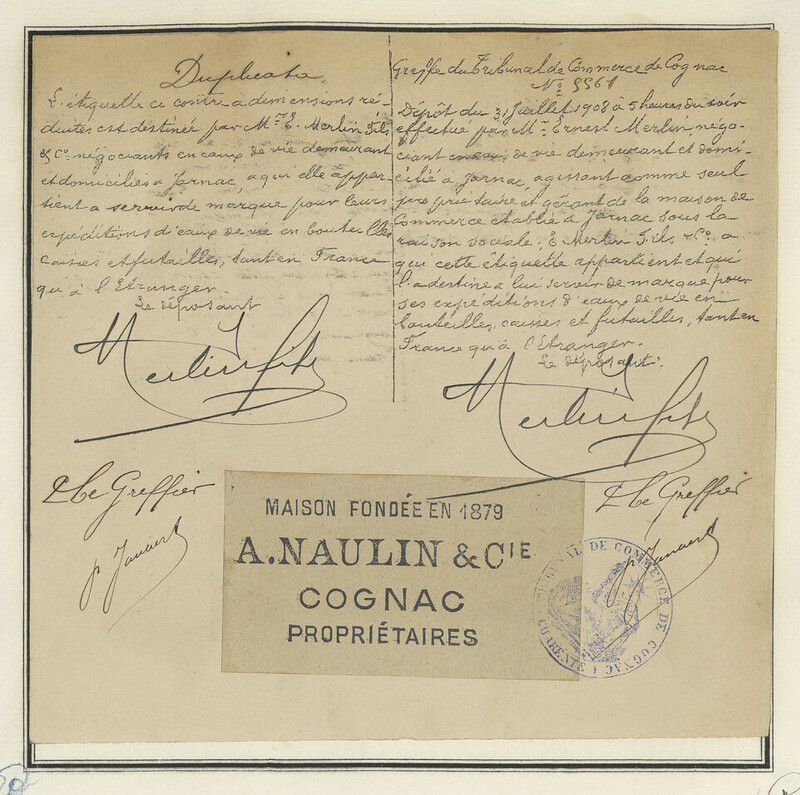 Duplicata
L'étiquette ci contre a dimensions ré-
duites est destinée par Mrs E. Merlin fils
& Co. négociants en eaux de vie demeurant
et domiciliés à Jarnac, a qui elle appar-
tient a servir de marque pour leurs
expéditions d'eaux de vie en bouteilles
caisses et futailles, tant en France
qu'à l'Etranger.
Le déposant
Merlin fils
Le Greffier
Greffe du Tribunal de Commerce de Cognac
No 5561
Dépôt du 31 Juillet 1908 à 5 heures du soir
effectué par Mr Ernest Merlin négo-
ciant en eaux de vie demeurant et domi-
cilié a Jarnac, agissant comme seul
propriétaire et gérant de la maison de
Commerce établie à Jarnac sous la
raison sociale: E. Merlin fils & Co. a
qui cette étiquette appartient et qui
l'a destine a lui servir de marque pour
ses expéditions d'eaux de vie en
bouteilles, caisses et futailles, tant en
France qu'à l'Etranger.
Le déposant:
Merlin fils
Le Greffier
MAISON FONDÉE EN 1879
A. NAULIN & CIE
COGNAC
PROPRIÉTAIRES
TRIBUNAL DE COMMERCE DE COGNAC
CHARENTE